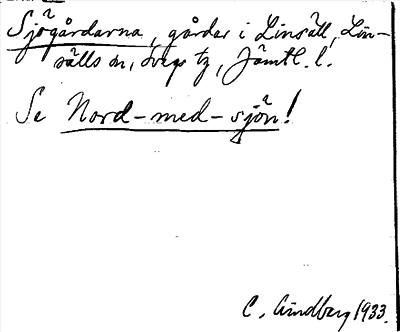 Sjögårdarna, gårdar i Linsäll, Lin-
sälls sn, Svegs tg, Jämtl. l.
Se Nord-med-sjön!
C. Lindberg 1933.